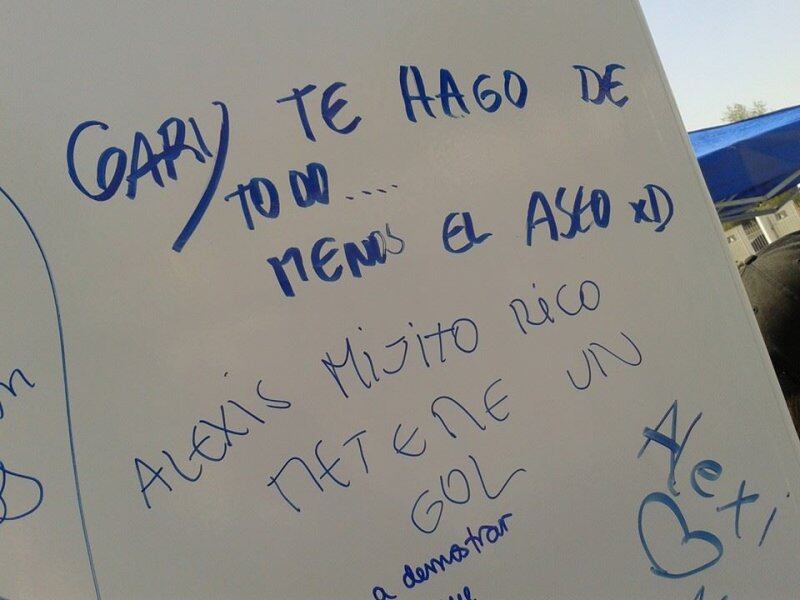 GARY TE HAGO DE
TODO....
MENOS EL ASEO xD
ALEXIS MIJITO RICO
METEME UN
GOL
Alexi
a demostrar